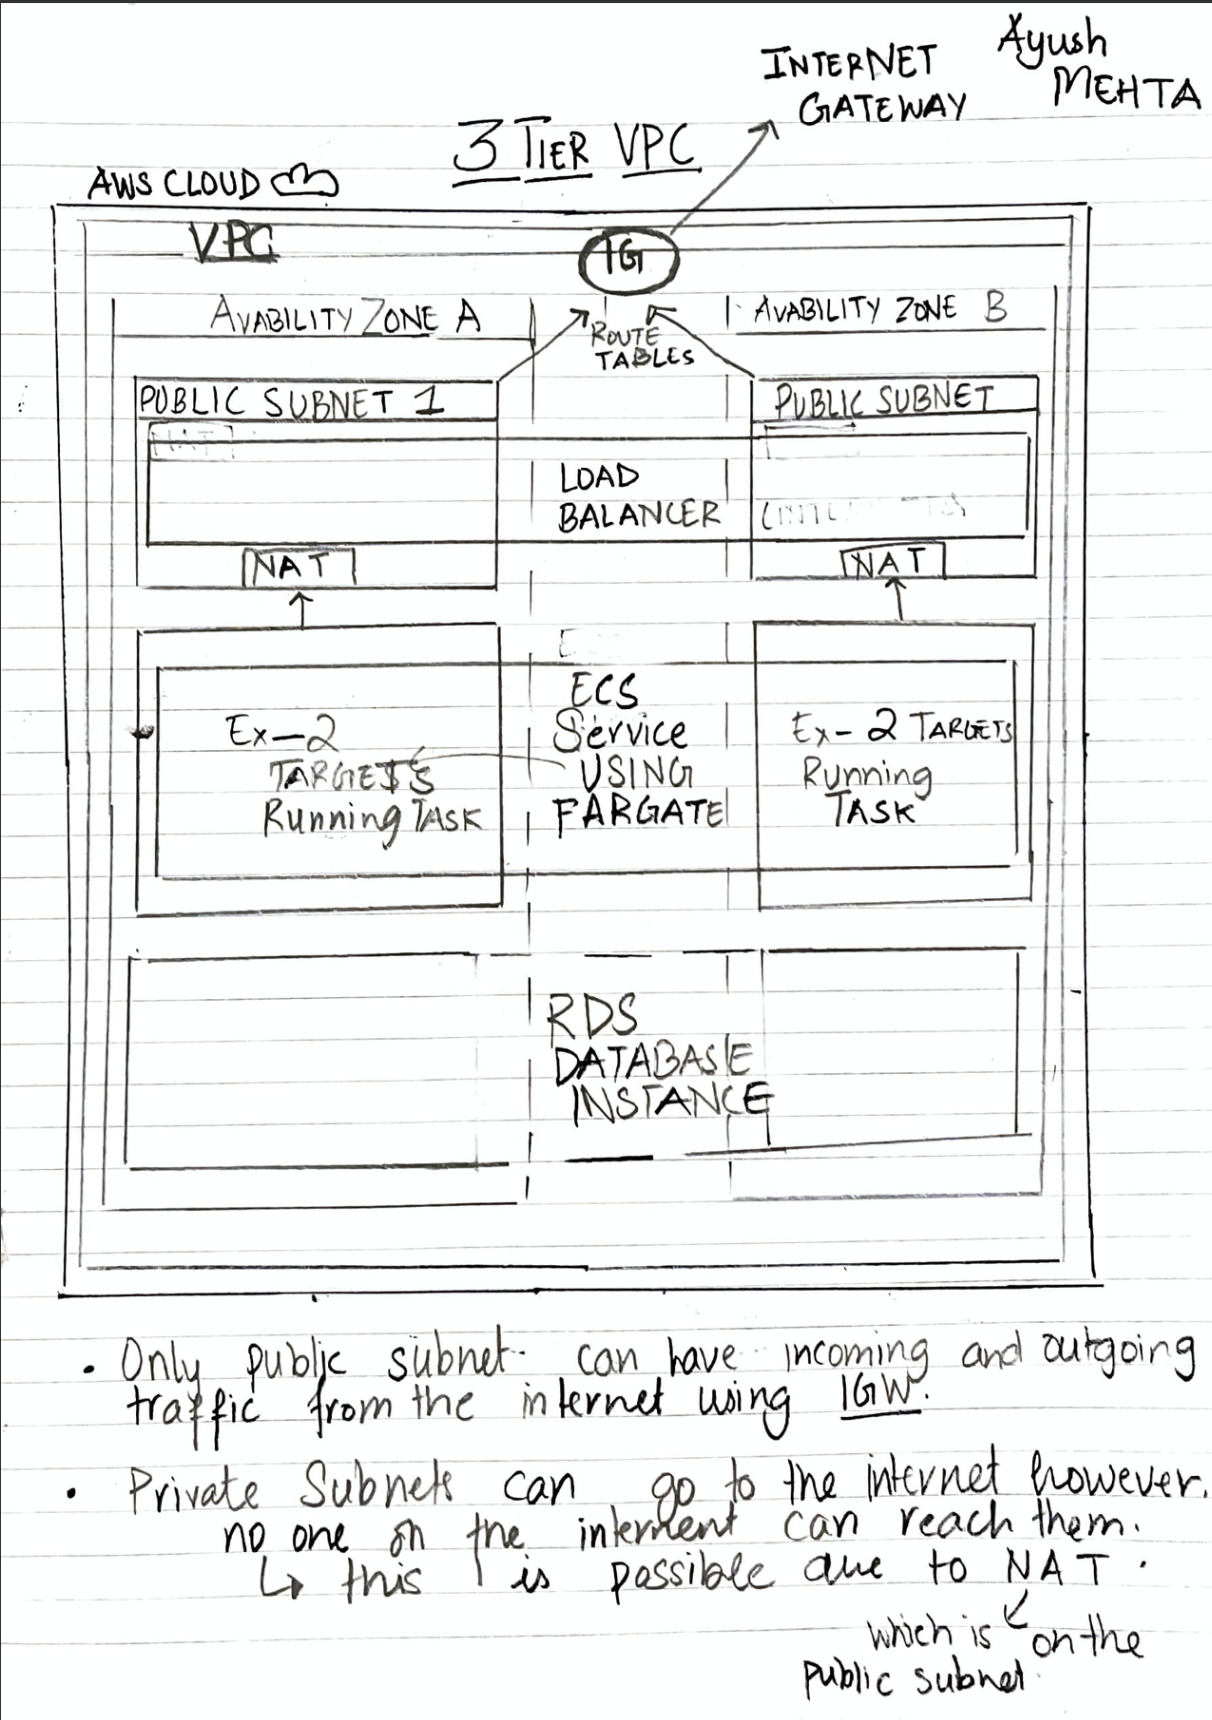 INTERNET
GATEWAY
Ayush
MEHTA
3 TIER VPC
AWS CLOUD
VPC
IG
AVABILITY ZONE A
AVABILITY ZONE B
ROUTE
TABLES
PUBLIC SUBNET 1
PUBLIC SUBNET
NAT
LOAD
BALANCER
NAT
NAT
ECS
Service
USING
FARGATE
Ex-2
TARGETS
Running TASK
Ex-2 TARGETS
Running
TASK
RDS
DATABASE
INSTANCE
• Only public subnet can have incoming and outgoing
traffic from the internet using IGW.
• Private Subnets can go to the internet however.
no one on the internent can reach them.
↳ this is possible due to NAT.
which is on the
public subnet.